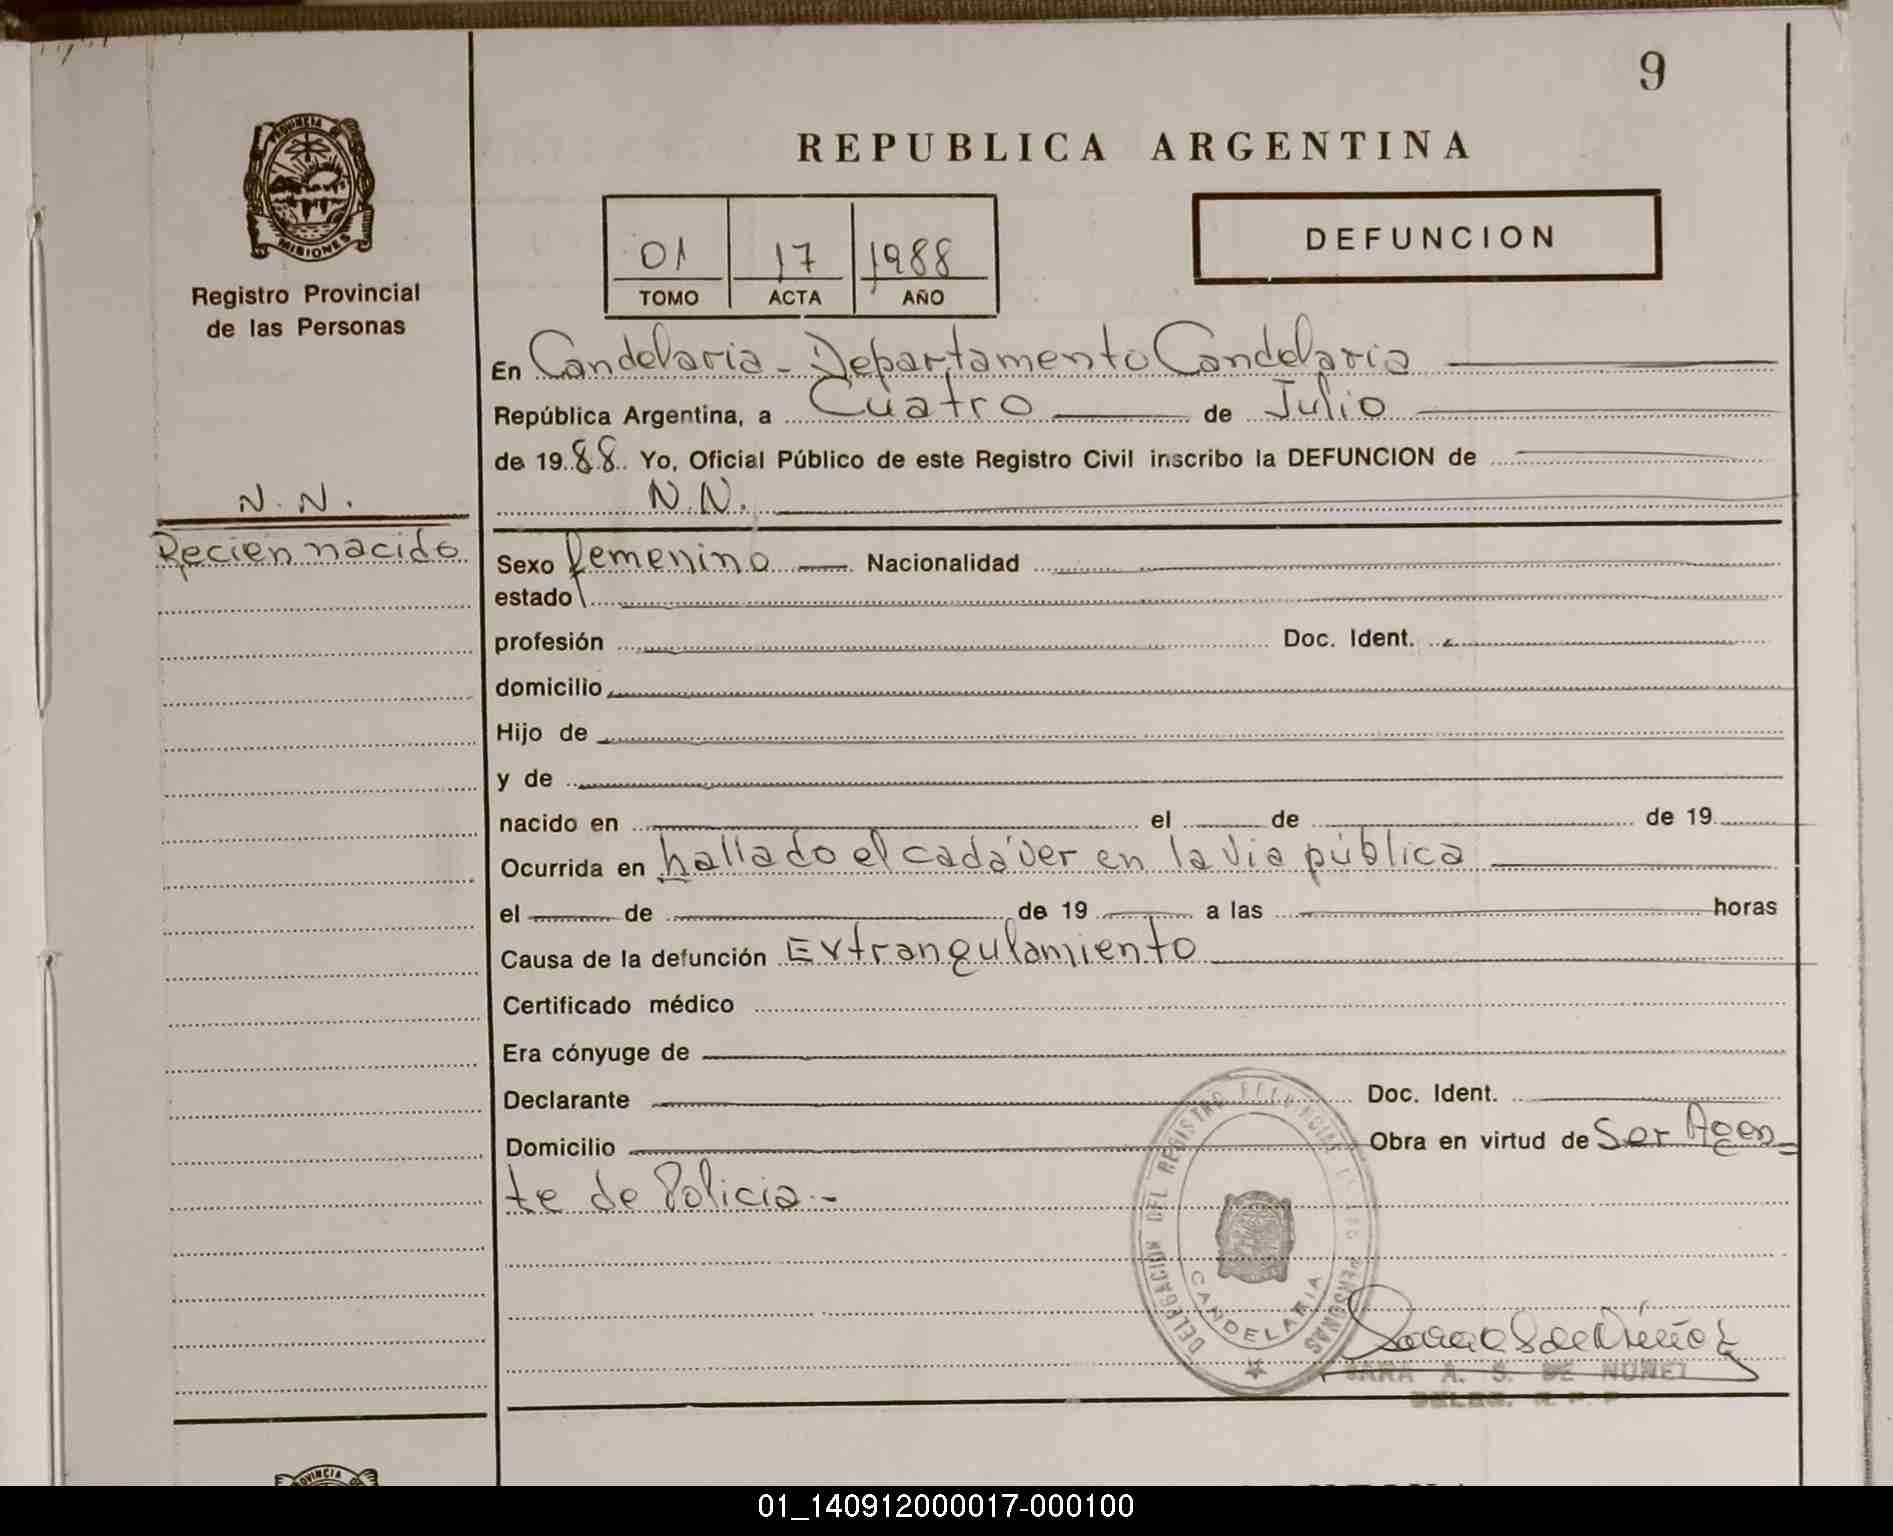 9
PROVINCIA DE
MISIONES
Registro Provincial
de las Personas
REPUBLICA ARGENTINA
01 17 1988
TOMO ACTA AÑO
DEFUNCION
En Candelaria - Departamento Candelaria
República Argentina, a Cuatro de Julio
de 1988 Yo, Oficial Público de este Registro Civil inscribo la DEFUNCION de
N.N.
N. N.
Recien nacido
Sexo femenino Nacionalidad
estado
profesión Doc. Ident.
domicilio
Hijo de
y de
nacido en el de de 19
Ocurrida en hallado el cadáver en la via pública
el de de 19 a las horas
Causa de la defunción Extrangulamiento
Certificado médico
Era cónyuge de
Declarante Doc. Ident.
Domicilio Obra en virtud de Ser Agen
te de Policia.-
DELEGACION DEL REGISTRO PROVINCIAL DE LAS PERSONAS
CANDELARIA
SARA A. S. DE NUÑEZ
DELEG. R. P. P.
PROVINCIA
01_140912000017-000100